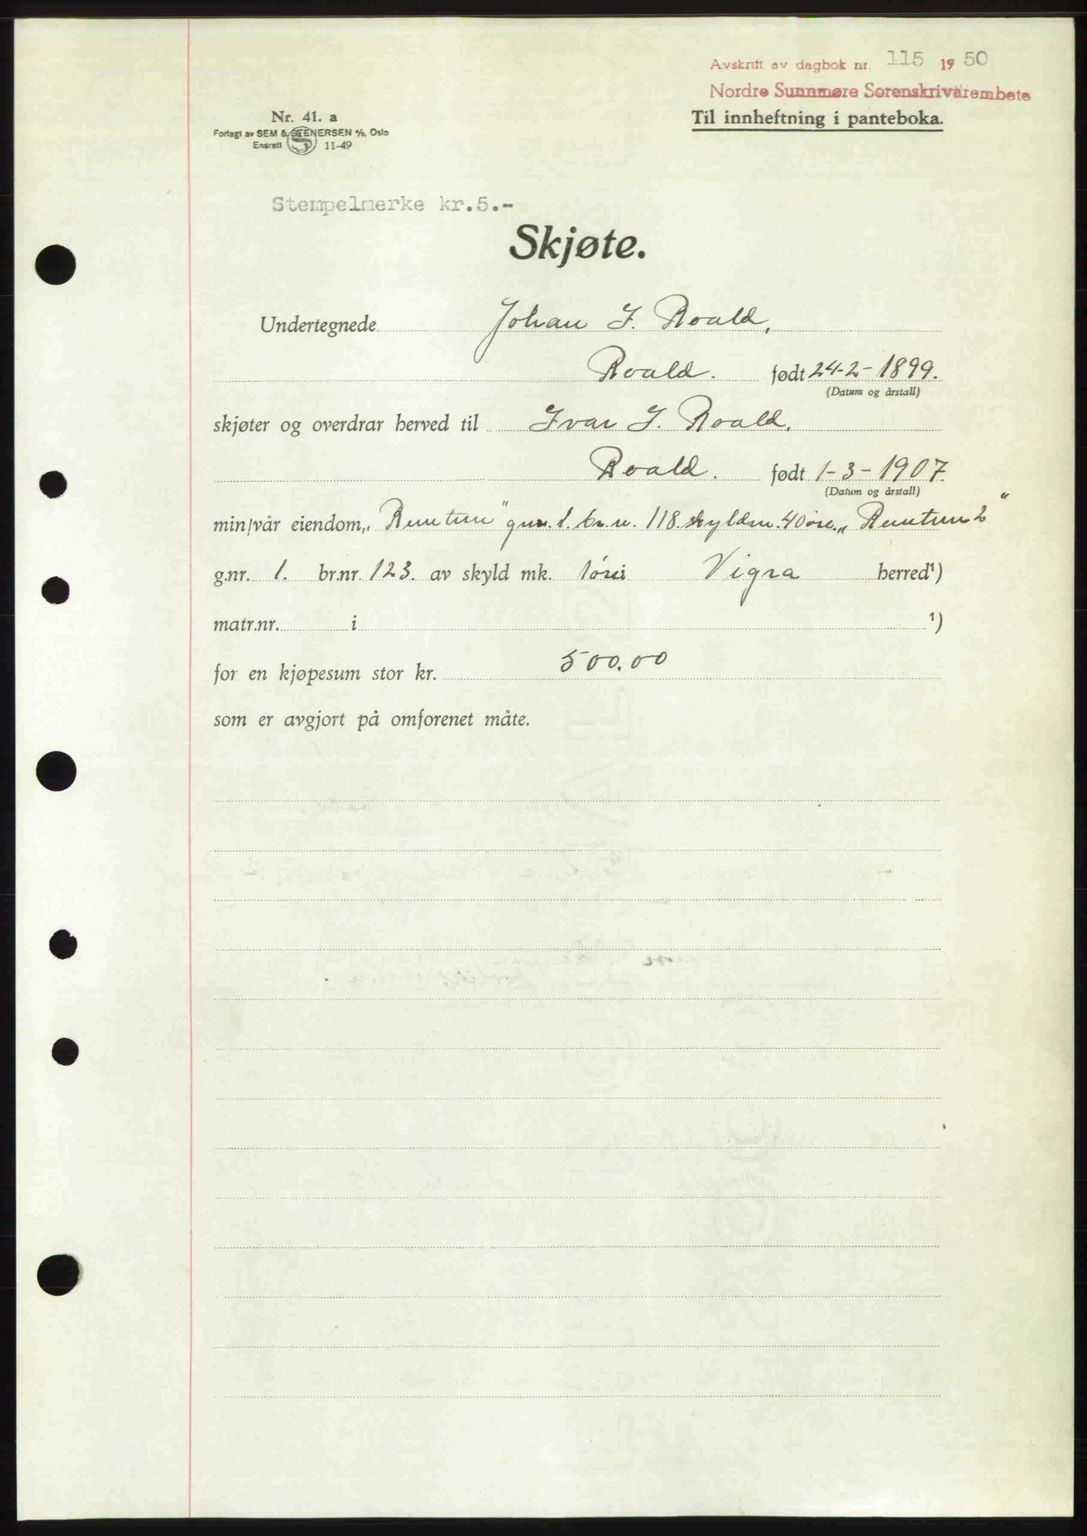 Avskrift av dagbok nr. 115 1950
Nordre Sunnmøre Sorenskrivarembete
Til innheftning i panteboka.
Nr. 41. a
Forlagt av SEM & STENERSEN A/S, Oslo
Enerett 11-49
Stempelmerke kr.5.-
Skjøte.
Undertegnede Johan I. Roald,
Roald. født 24-2-1899.
(Datum og årstall)
skjøter og overdrar herved til Ivar I. Roald,
Roald. født 1-3-1907.
(Datum og årstall)
min/vår eiendom „ " gnr. 1. br.n. 118. skyldm. 40 øre „ 2"
g.nr. 1. br.nr. 123. av skyld mk. 1 øre i Vigra herred¹)
matr.nr. i ¹)
for en kjøpesum stor kr. 500.00
som er avgjort på omforenet måte.